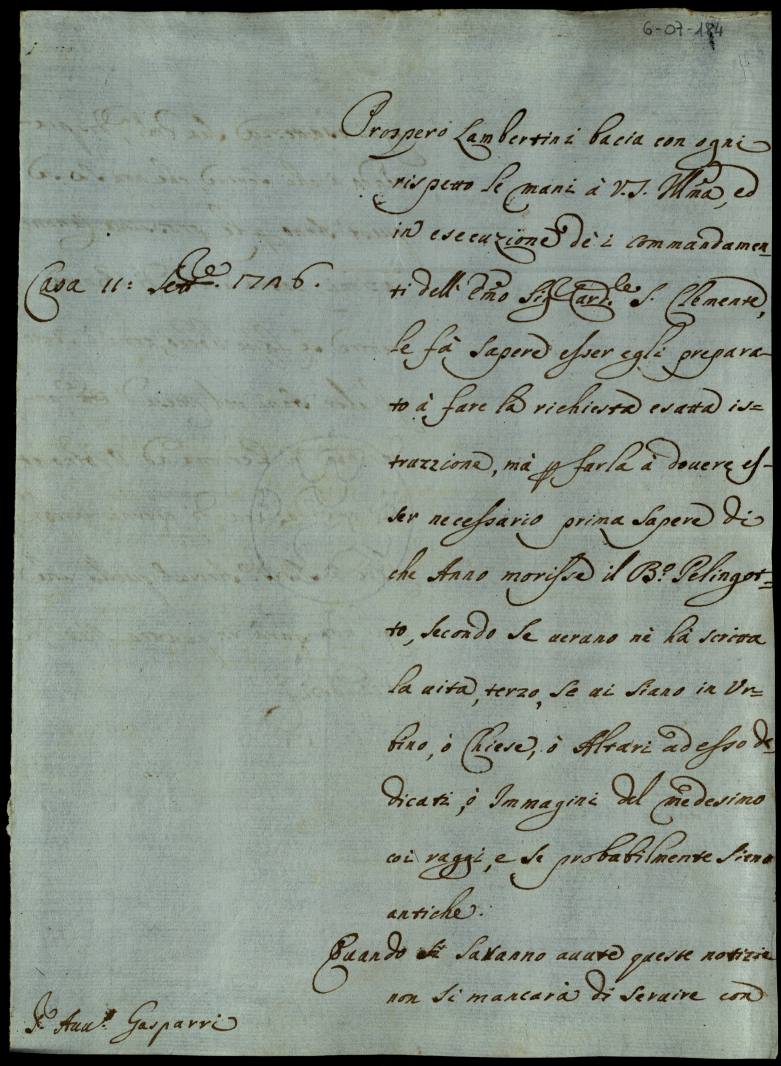 6-07-184
Prospero Lambertini bacia con ogni
rispetto le mani à V.S. Ill͠ma, ed
in esecuzione dè i commandamen=
Casa 11: Sett͠re. 1716.
ti dell' E͠mo Sig.r Card.le S. Clemente,
le fà sapere esser egli prepara=
to à fare la richiesta esatta is=
truzzione, mà ꝑ farla à dovere es=
ser necessario prima sapere di
che Anno morisse il B.o Pelingot=
to, secondo se verano nè hà scritta
la vita, terzo, se vi siano in Ur=
bino, ò Chiese, ò Altari ad esso de=
dicati, ò Immagini del medesimo
coi raggi, e se probabilmente siano
antiche.
Quando si saranno avute queste notizie
non si mancarà di servire con
S.r Avv.o Gasparri